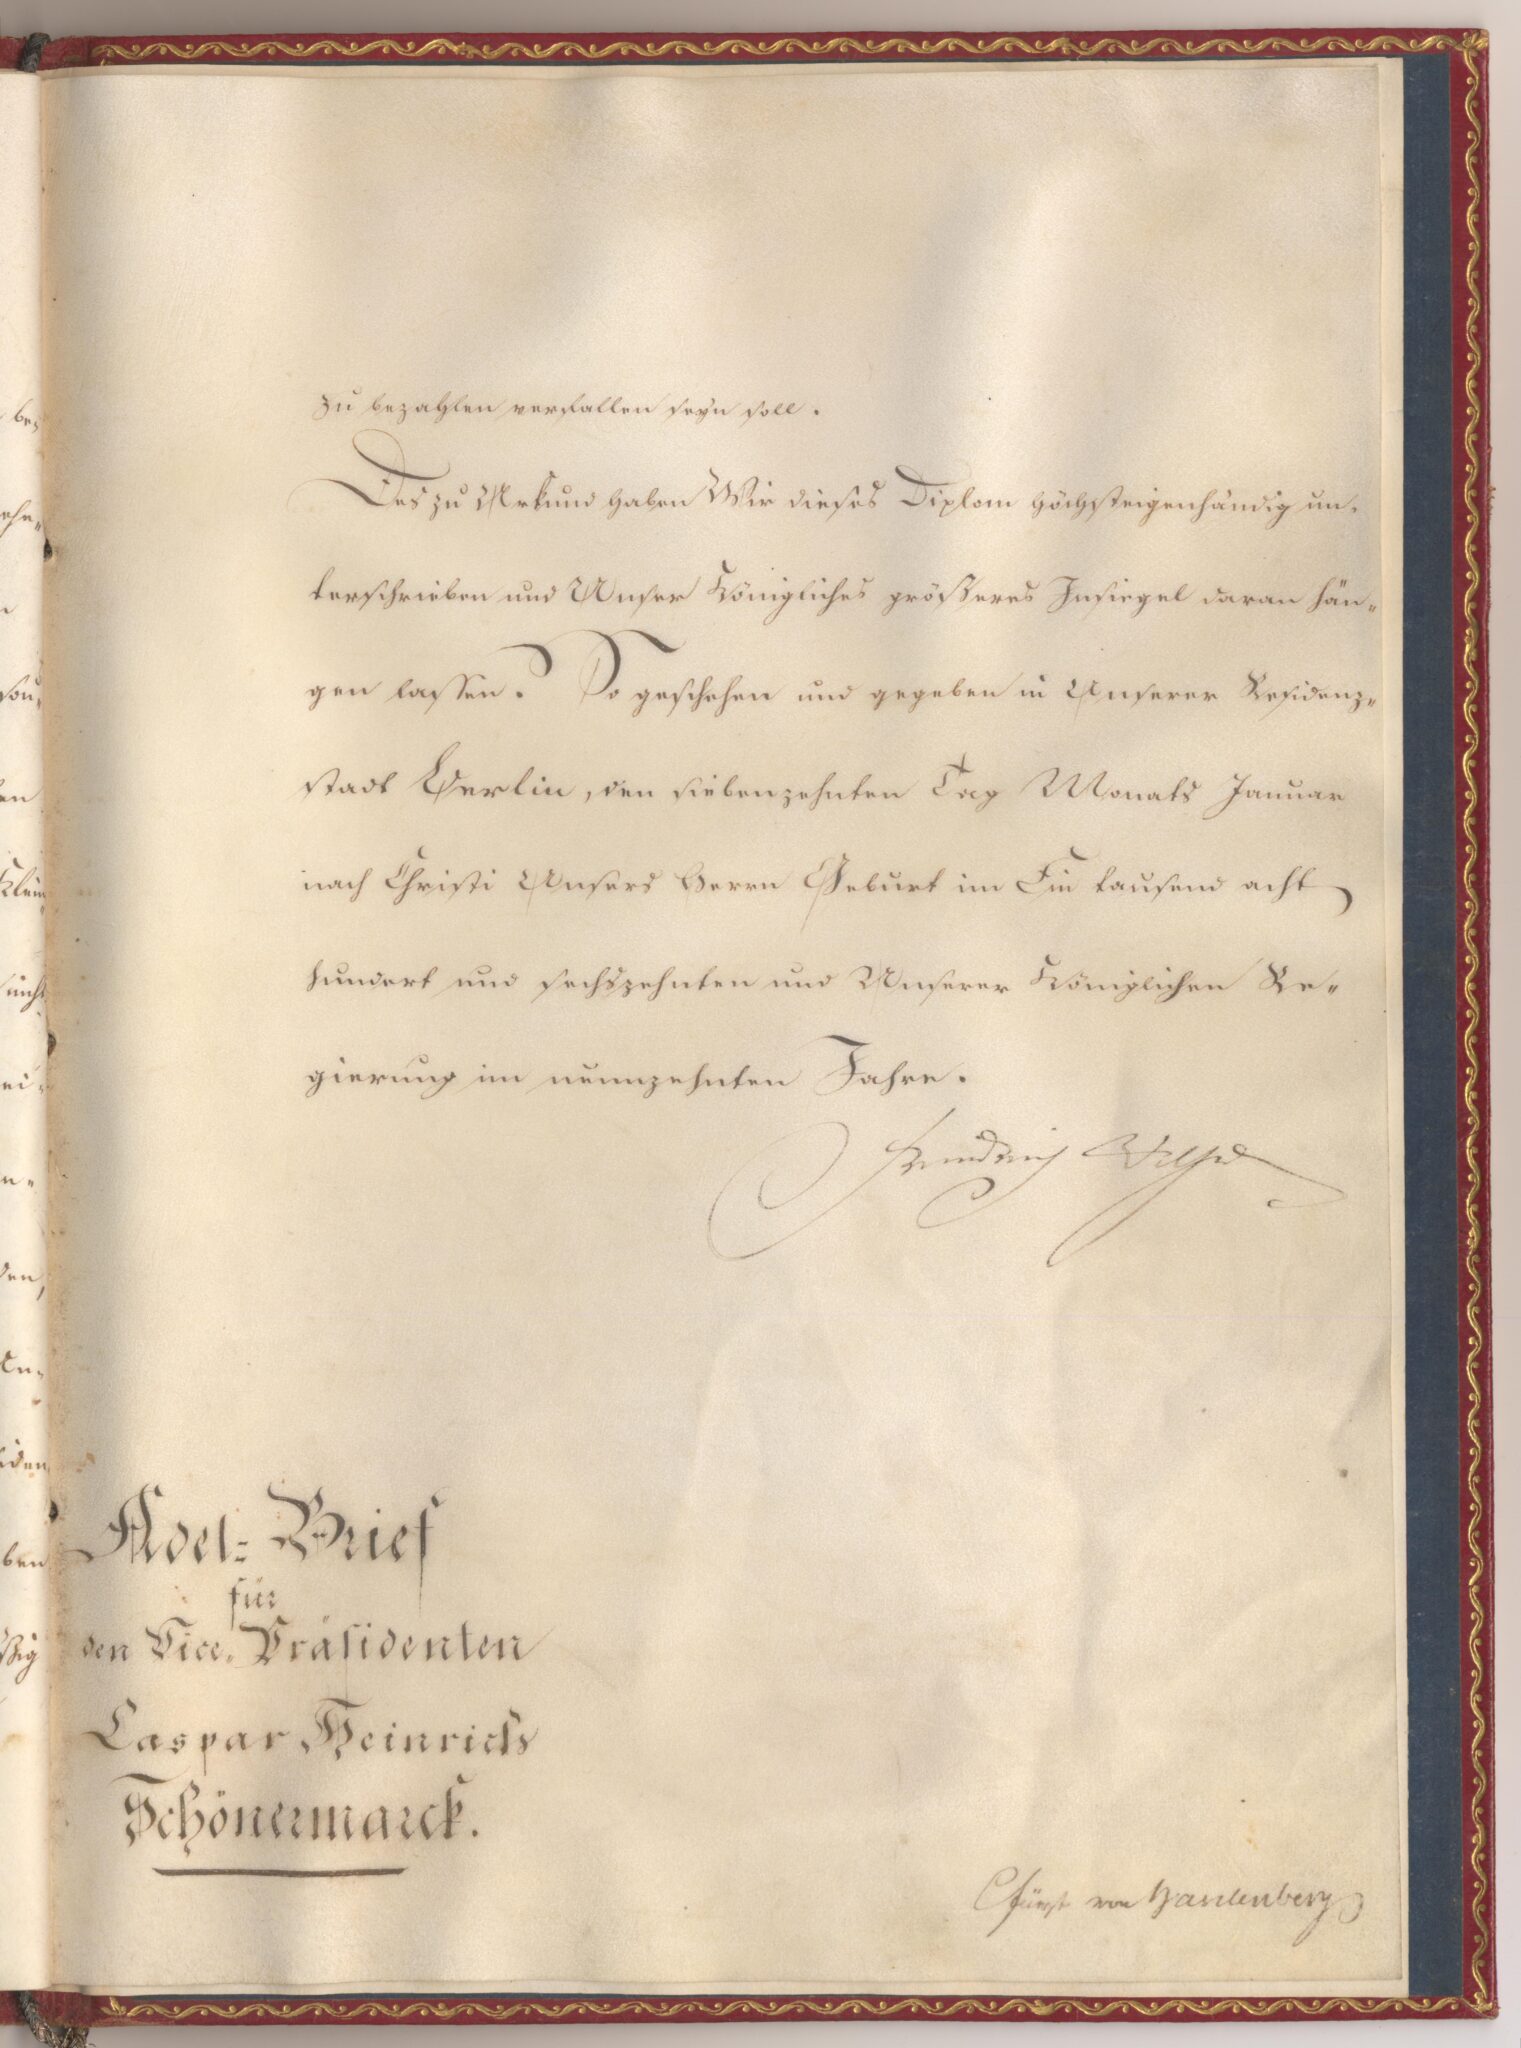 zu bezahlen verfallen seyn soll.
Des zu Urkund haben Wir dieses Diplom höchsteigenhändig un-
terschrieben und Unser Königliches größeres Insiegel daran hän-
gen lassen. So geschehen und gegeben in Unserer Residenz-
stadt Berlin, den siebenzehnten Tag Monats Januar
nach Christi Unsers Herrn Geburt im Ein tausend acht
hundert und sechszehnten und Unserer Königlichen Re-
gierung im neunzehnten Jahre.
Friedrich Wilhelm
Adel-Brief
für
den Vice-Präsidenten
Caspar Heinrich
Schönermarck.
CFürst von Hardenberg